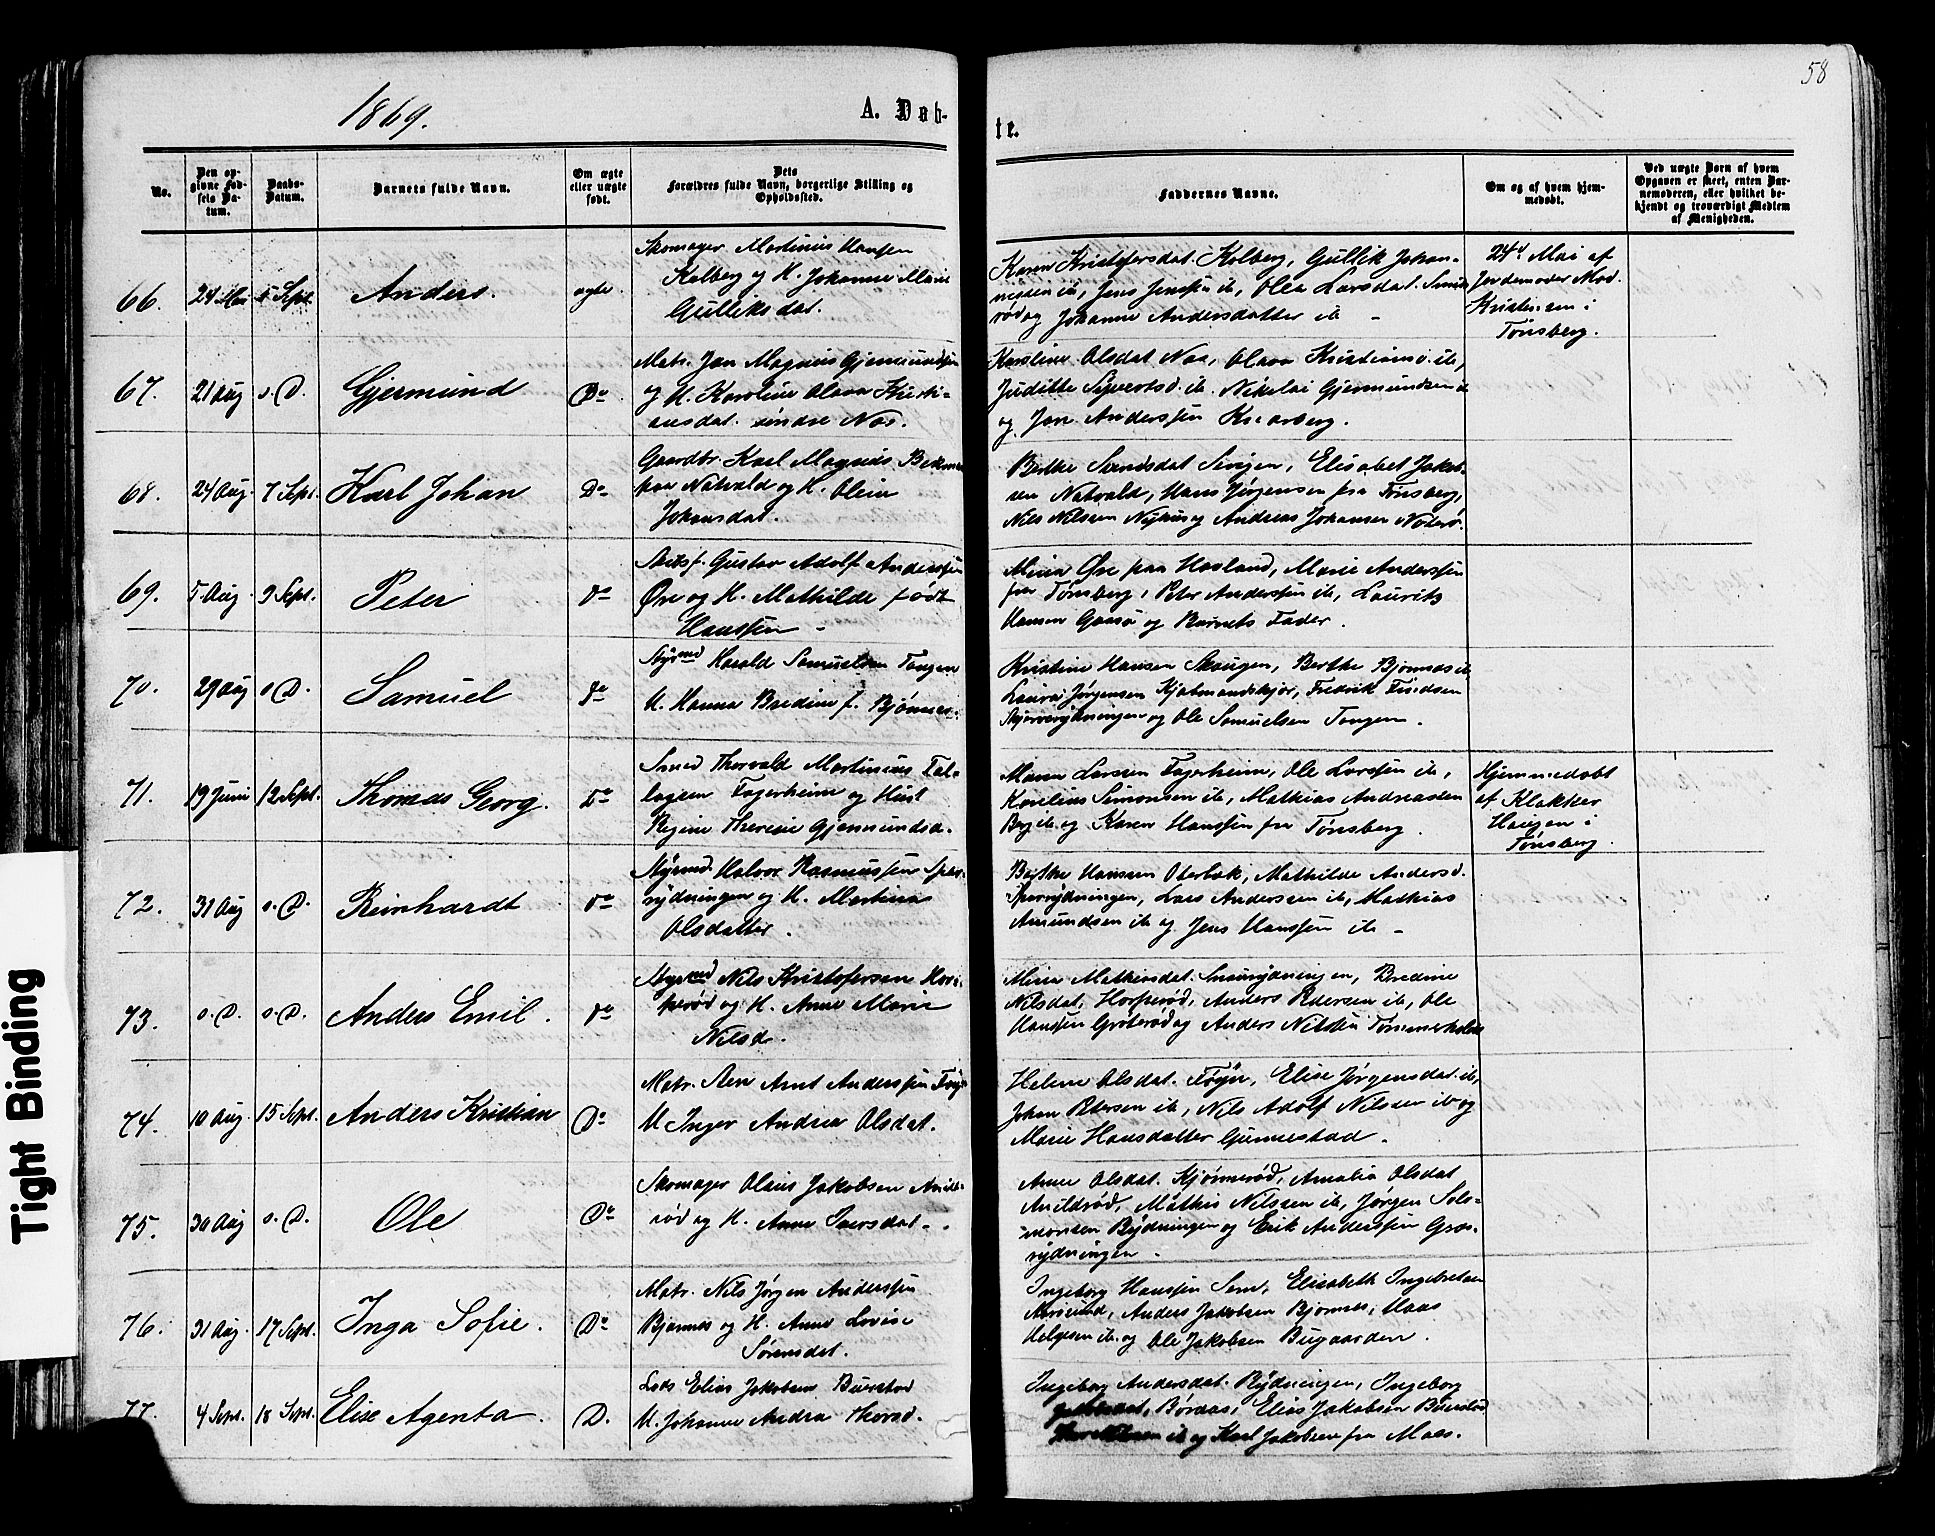 58
1869.
A. Døb-
te.
No.
Den op-
givne Fød-
sels Da-
tum.
Daabs-
Datum.
Barnets fulde Navn.
Om ægte
eller uægte
født.
Dets
Forældres fulde Navn, borgerlige Stilling og
Opholdssted.
Faddernes Navne.
Om og af hvem hjem-
medøbt.
Ved uægte Børn af hvem
Opgaven er skeet, enten Bar-
nemoderen, eller hvilket be-
kjendt og troværdigt Medlem
af Menigheden.
66. 24 Mai 5 Sept. Anders. ægte.
Skomager Martinus Hansen
Kolberg og H. Johanne Marie
Gulliksdat.
Karen Kristofersdat. Kolberg, Gullik Johan-
nesen ib, Jens Jensen ib, Olea Larsdat.
rød og Johanne Andersdatter ib -
24d Mai af
Jordemoder Mad.
Kristensen i
Tønsberg.
67. 21 Aug s. D. Gjermund Do.
Matr. Jan Magnus Gjermundsen
og H. Karoline Olava Kristi-
ansdat. søndre Nøs.
Karoline Olsdat Nøs, Olava Kristians. ib,
Juditte Syverts d. ib. Nikolai Gjermundsen
og Jan Anderssen Knarberg.
68. 24 Aug. 7 Sept. Karl Johan Do
Gaardbr. Karl Magnus
paa Natvald og H. Olein
Johansdat.
Berthe Elisabet Jakob-
sen Natvald, Hans Jørgensen fra Tønsberg,
Nils Nilssen Nyhus og Andreas Johansen Nøterø.
69. 5 Aug. 9 Sept. Peter do
Gustav Adolf Anderssen
Øre og H. Mathilde født
Hanssen -
Mina Øre paa Havland, Marie Anderssen
fra Tønsberg, Peter Anderssen ib, Laurits
Hansen Gaasø og Barnets Fader.
70. 29 Aug s. D. Samuel do
Styrmd Harald Samuelsen Tangen
H. Hanna Bredine f. Bjønnes.
Kristine Hansen Skaugen, Berthe Bjønnes ib
Laura Jørgensen Kjøbmandskjær, Fredrik
og Ole Samuelsen Tangen.
71. 19 Juni 12 Sept. Thomas Georg. Do
Smed Thorvald Martinius Tal-
laksen Fagerheim og Hust
Regine Therese Gjermundsd.
Maren Larssen Fagerheim, Ole Larssen ib,
Karelius Simonsen ib, Mathias Andreassen
Berg ib. og Karen Hanssen fra Tønsberg.
Hjemmedøbt
af Klokker
Haugen i
Tønsberg.
72. 31 Aug s. D. Reinhardt do
Styrmd. Halvor Rasmussen
rydningen og H. Martina
Olsdatter.
Berthe Hanssen Oterbæk, Mathilde Andersd.
Lars Anderssen ib, Mathias
Amundsen ib og Jens Hanssen ib -
73. s. D. s. D. Anders Emil. do
Styrmd Nils Kristofersen
og H. Anne Marie
Nilsd.
Mina Mathiasdat. Bredine
Nilsdat. Anders Pedersen ib, Ole
Hanssen og Anders Nilsen
74. 10 Aug. 15 Sept. Anders Kristian Do
Matr. Arnt Anderssen
H. Inger Andrea Olsdat.
Helene Olsdat. Føyn, Elise Jørgensdat. ib,
Johan Petersen ib, Nils Adolf Nilssen ib og
Marie Hansdatter Gunnestad.
75. 30 Aug s. D. Ole Do
Skomager Olaus Jakobsen Arild-
rød og H. Anne Iversdat.
Anne Olsdat. Kjønnerød, Amalia Olsdat
Arildrød, Mathis Nilssen ib, Jørgen Salo-
monsen Rydningen og Erik Anderssen Græs-
rydningen -
76. 31 Aug. 17 Sept. Inga Sofie. Do
Matr. Nils Jørgen Anderssen
Bjønnes og H. Anne Lovise
Sørensdat.
Ingeborg Hanssen Sem, Elisabeth Ingebretsen
Anders Jakobsen Bjønnes, Hans
Helgesen ib. og Ole Jakobsen Bugaarden.
77. 4 Sept. 18 Sept. Elise Agenta. D.
Lods Elias Jakobsen Buerstad
H. Johanne Andrea Thorsd.
Ingeborg Andersdat. Rydningen, Ingeborg
Børaas, Elias Jakobsen Buerstad
ib og Karl Jakobsen fra
Tight Binding